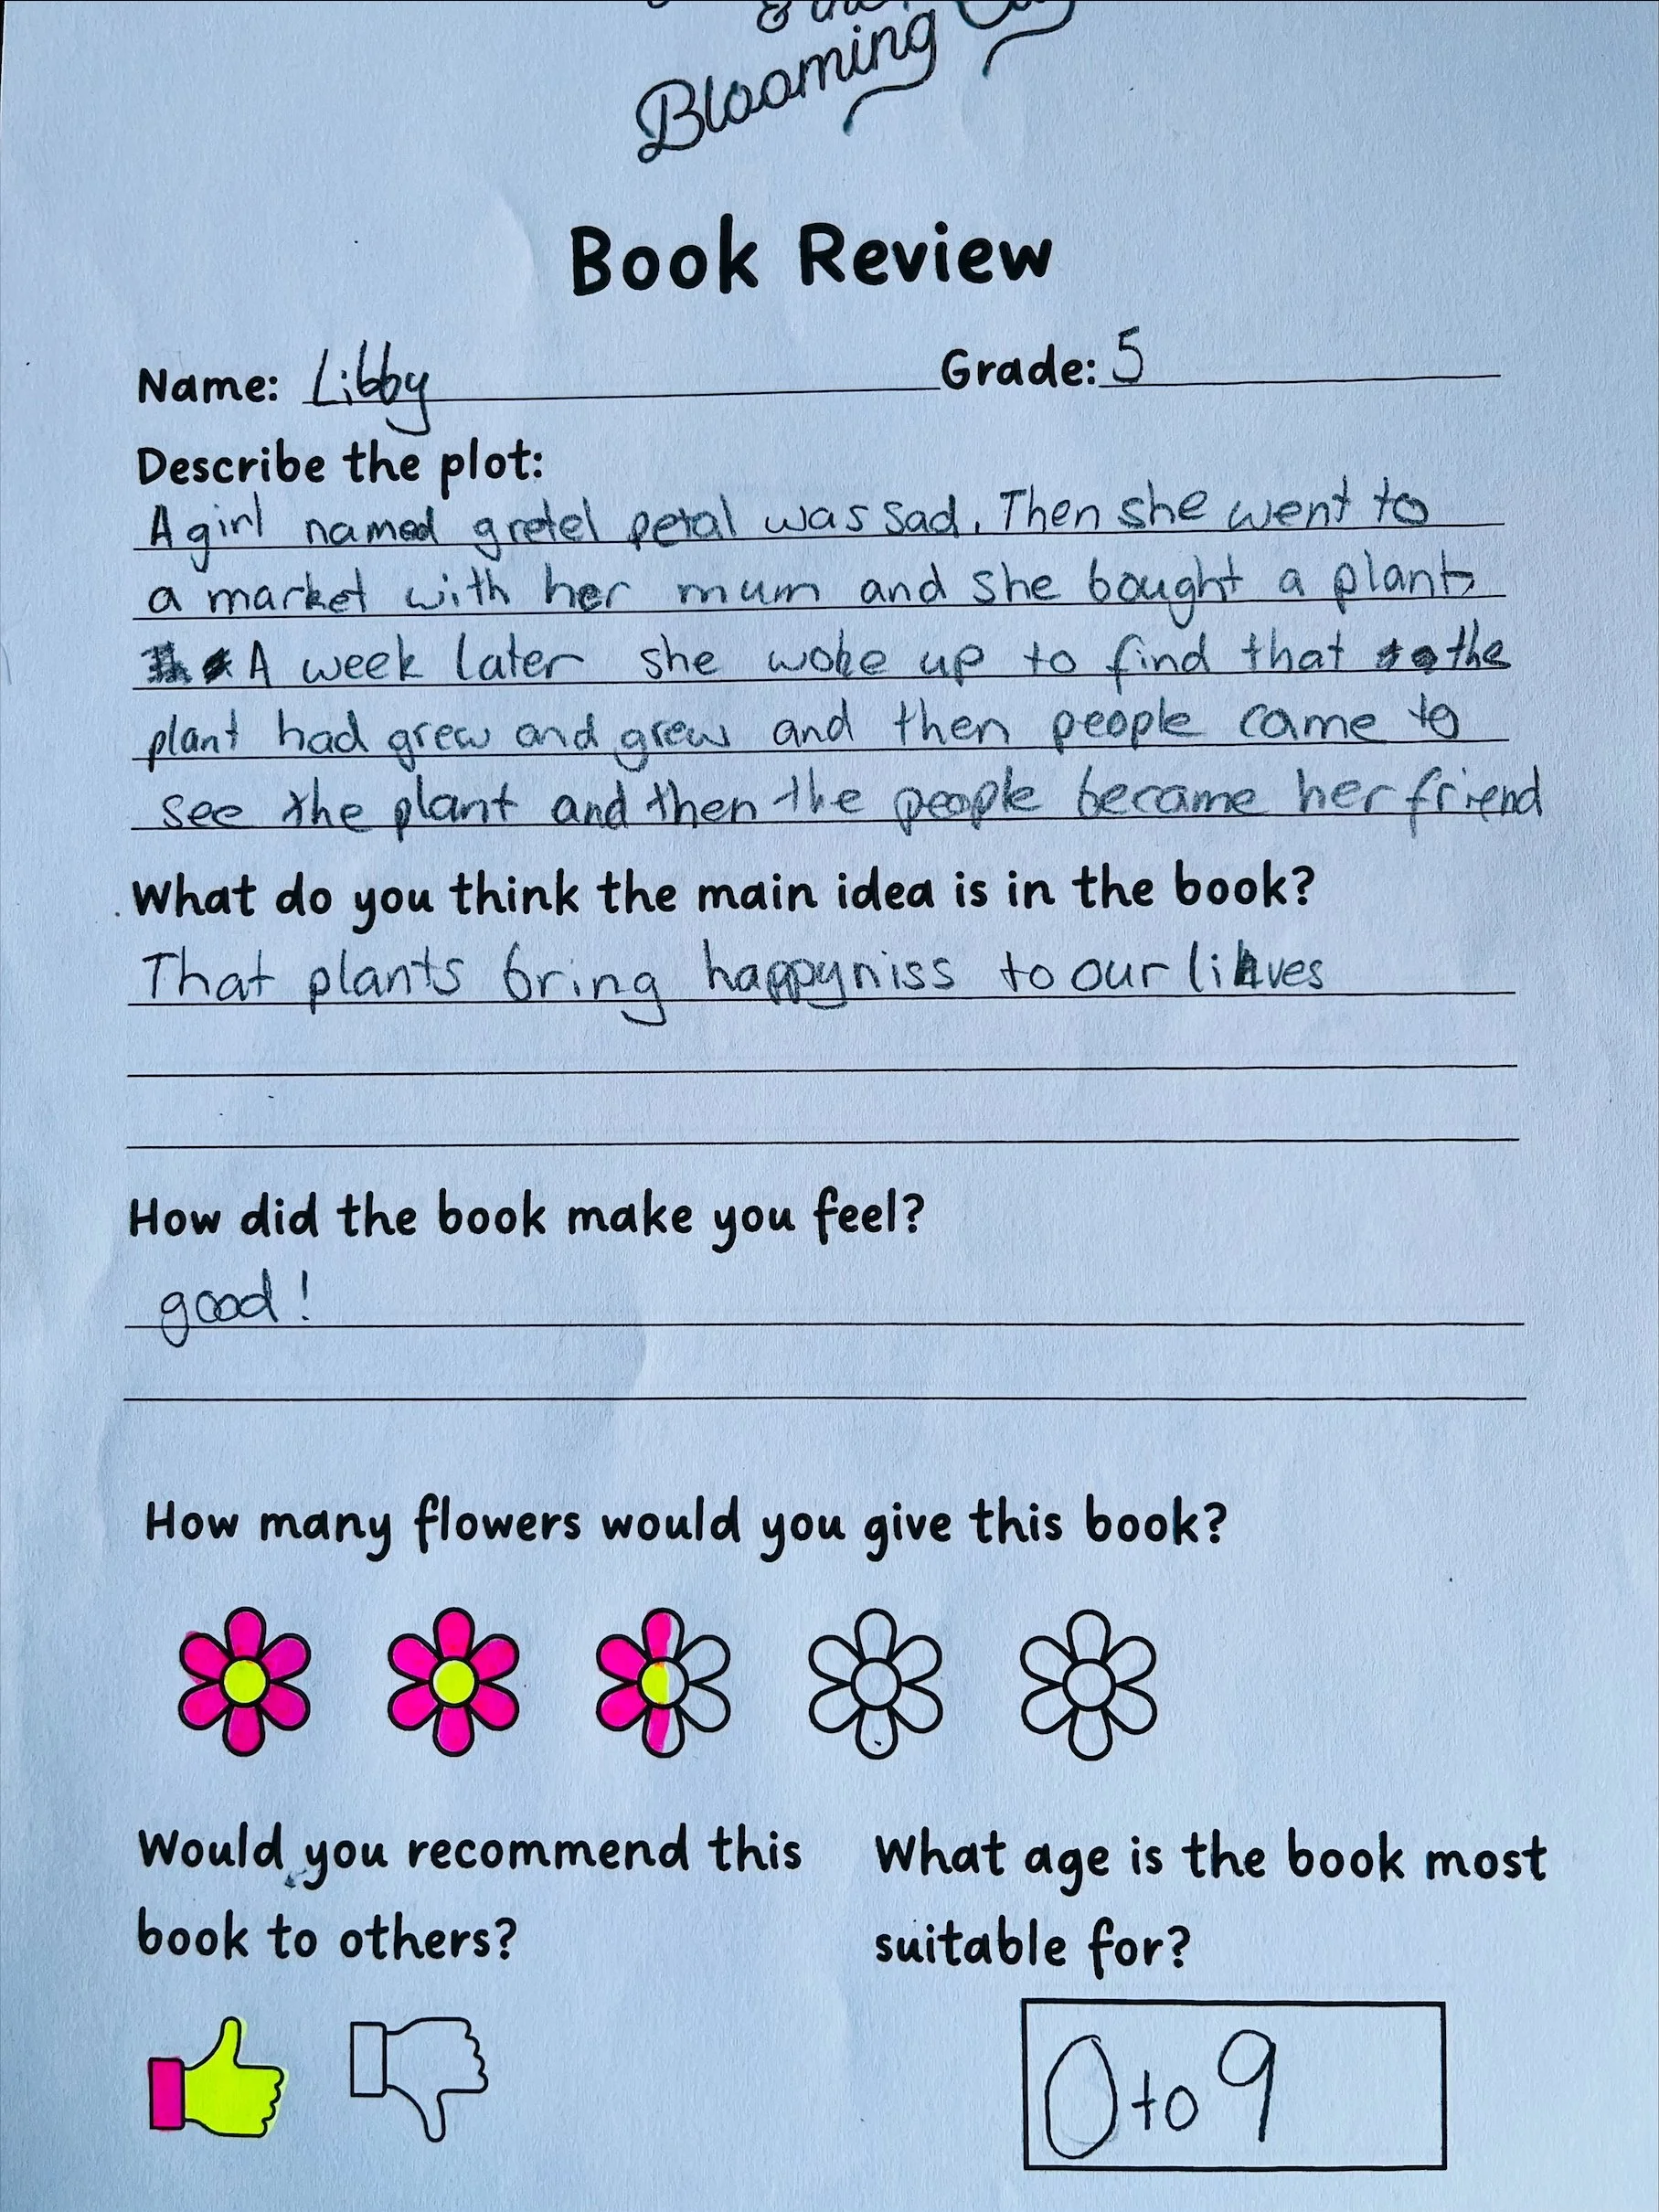 & the
Blooming
Book Review
Name: Libby Grade: 5
Describe the plot:
A girl named gretel petal was sad. Then she went to
a market with her mum and she bought a plant
A week later she woke up to find that the
plant had grew and grew and then people came to
see the plant and then the people became her friend
What do you think the main idea is in the book?
That plants bring happyniss to our lives
How did the book make you feel?
good!
How many flowers would you give this book?
Would you recommend this
book to others?
What age is the book most
suitable for?
0 to 9